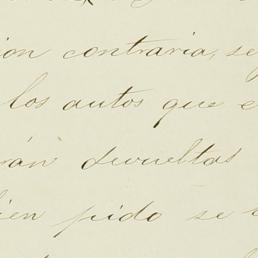 ion contraria, se
los autos que e
rán devueltas
ien pido se